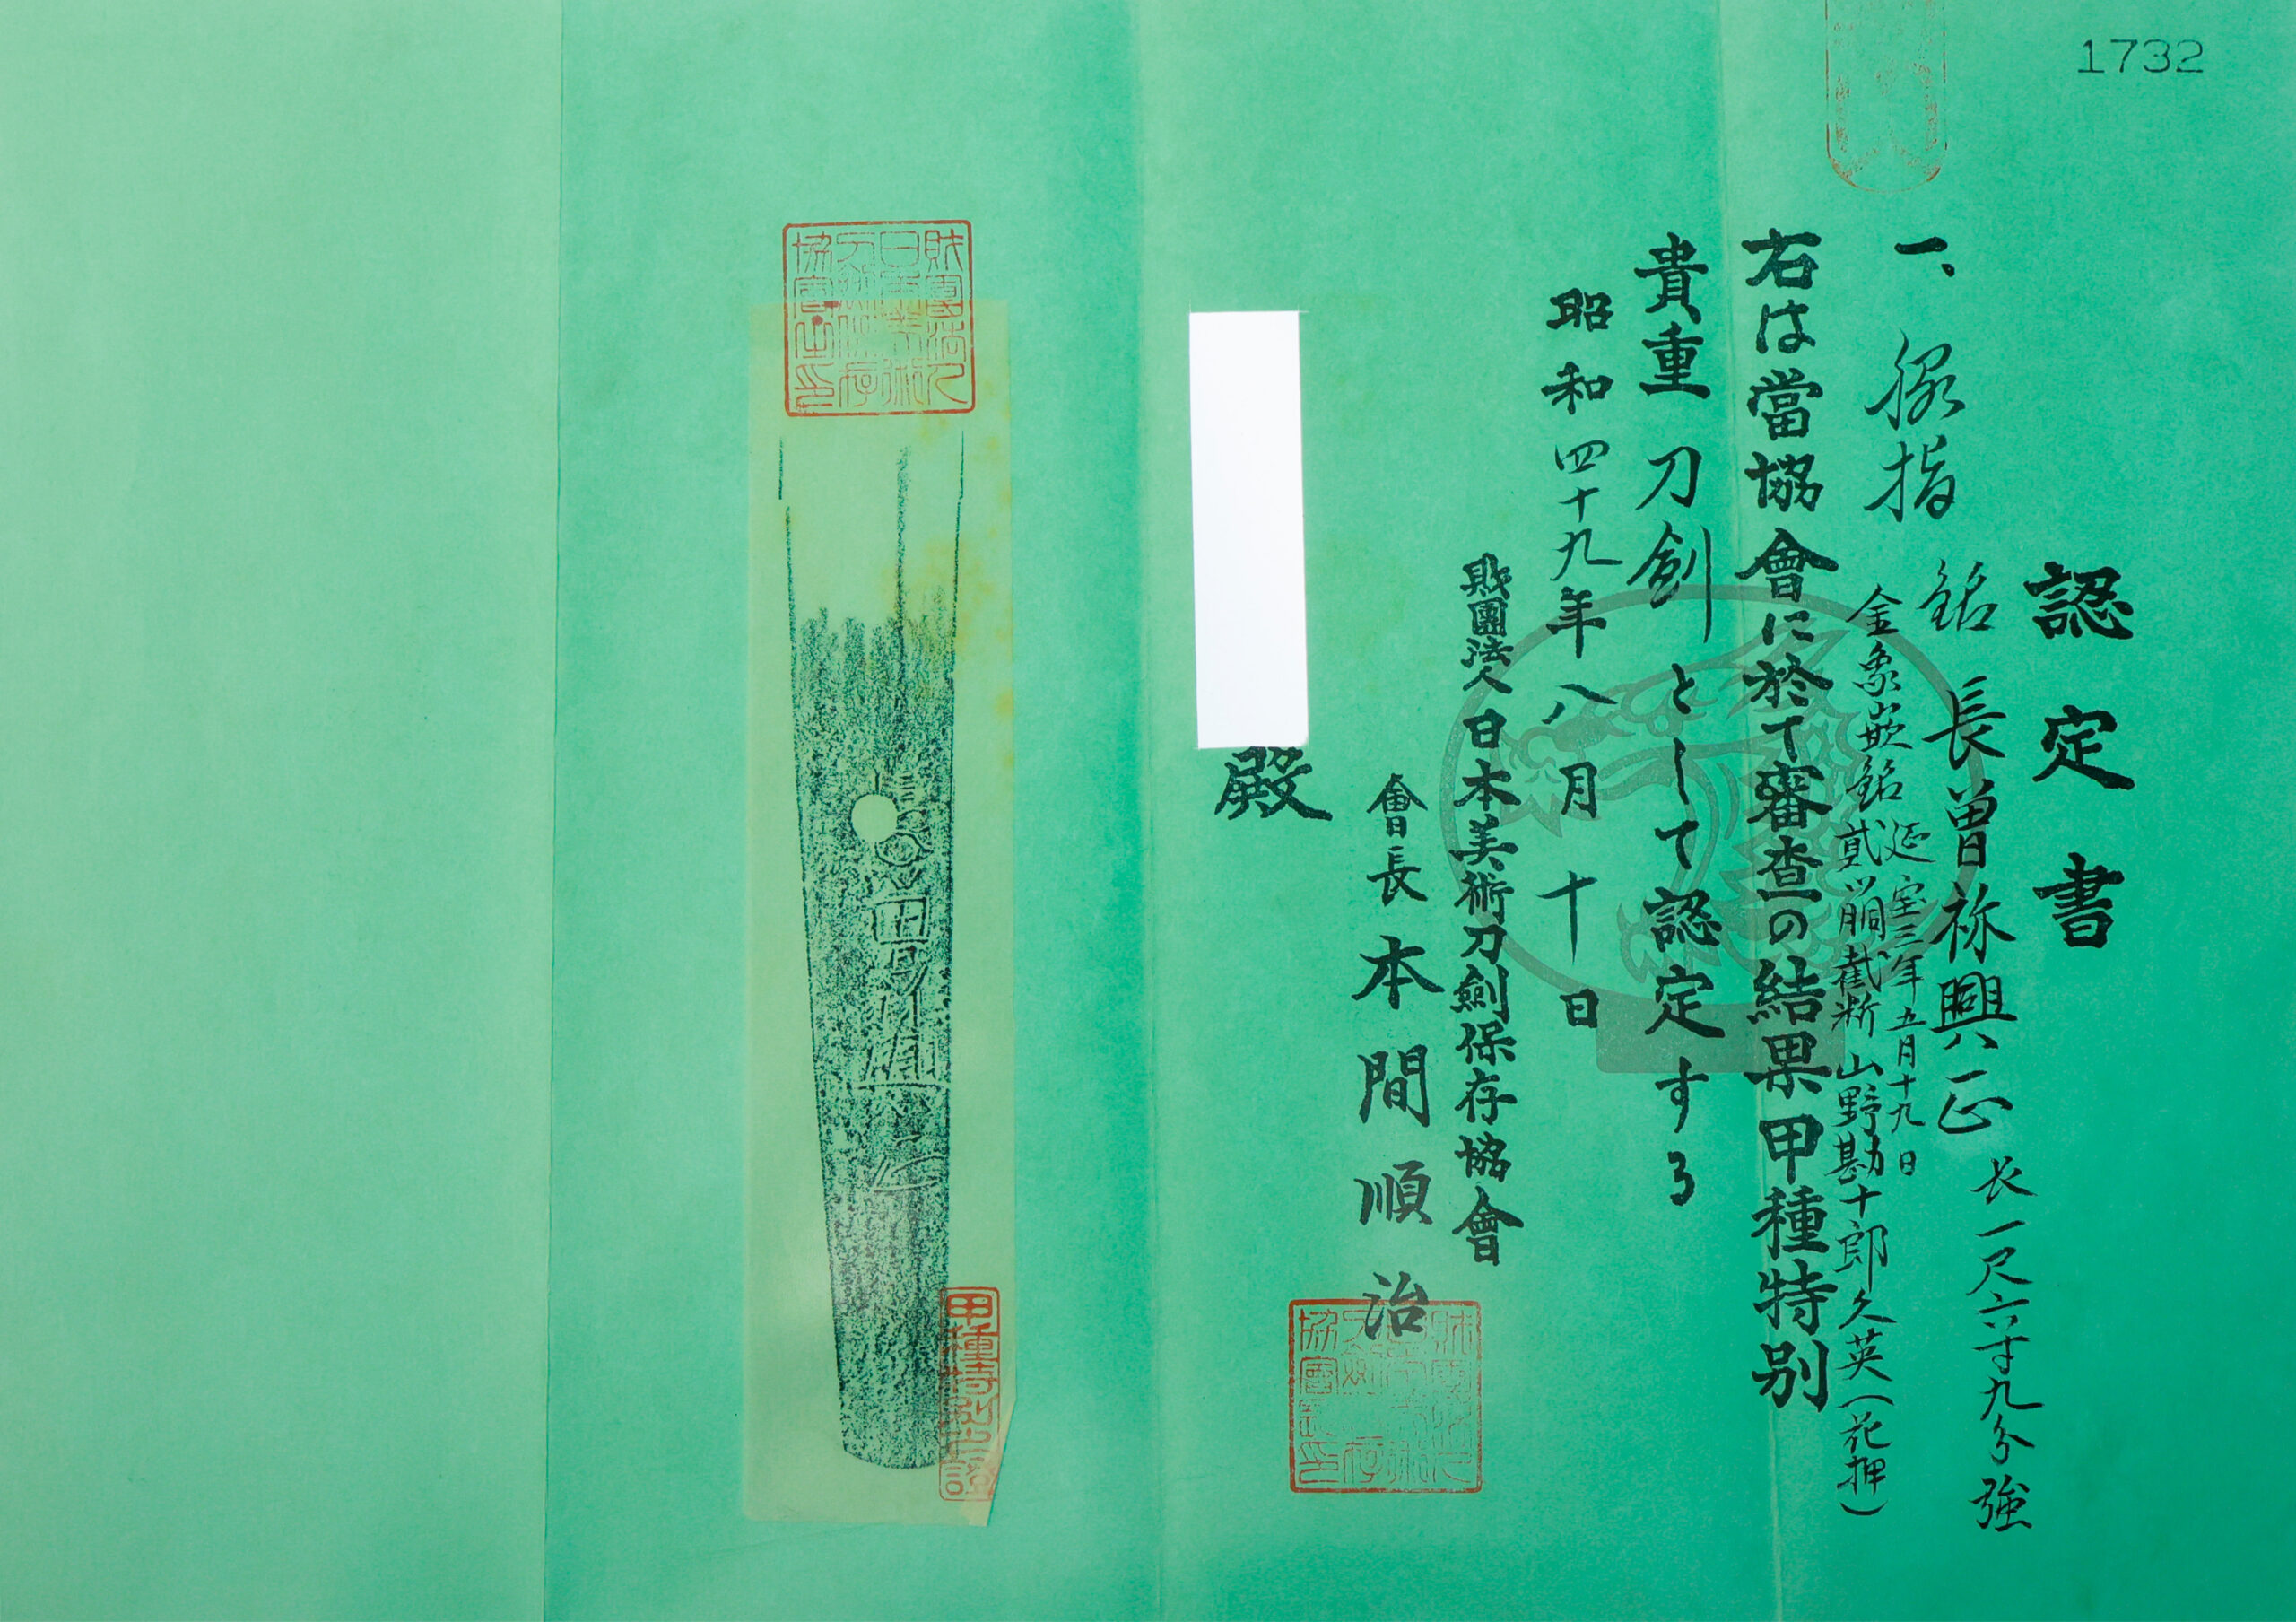 1732
認定書
一、脇指 銘 長曽祢興正 长一尺六寸九分強
金象嵌銘 延宝三年五月十九日
貮ツ胴截断 山野勘十郎久英(花押)
右は當協會に於て審査の結果甲種特別
貴重刀劍として認定する
昭和四十九年八月十日
財團法人日本美術刀劍保存協會
會長 本間順治
殿
甲種特別之證